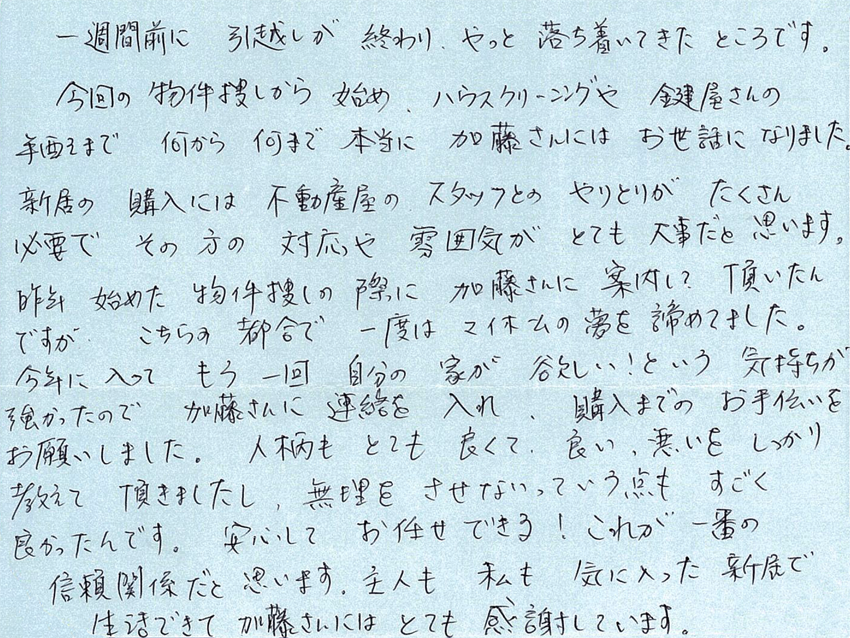 一週間前に 引越しが 終わり、やっと 落ち着いてきた ところです。
今回の 物件捜しから 始め、ハウスクリーニングや 鍵屋さんの
手配まで 何から 何まで 本当に 加藤さんには お世話に なりました。
新居の 購入には 不動産屋の スタッフとの やりとりが たくさん
必要で その 方の 対応や 雰囲気が とても 大事だと 思います。
昨年 始めた 物件捜しの 際に 加藤さんに 案内して 頂いたん
ですが、こちらの 都合で 一度は マイホームの 夢を 諦めてました。
今年に 入って もう 一回 自分の 家が 欲しい！という 気持ちが
強かったので 加藤さんに 連絡を 入れ、購入までの お手伝いを
お願いしました。人柄も とても 良くて、良い、悪いを しっかり
教えて 頂きましたし、無理を させないっていう点も すごく
良かったんです。安心して お任せできる！これが 一番の
信頼関係だと 思います。主人も 私も 気に入った 新居で
生活できて 加藤さんには とても 感謝しています。